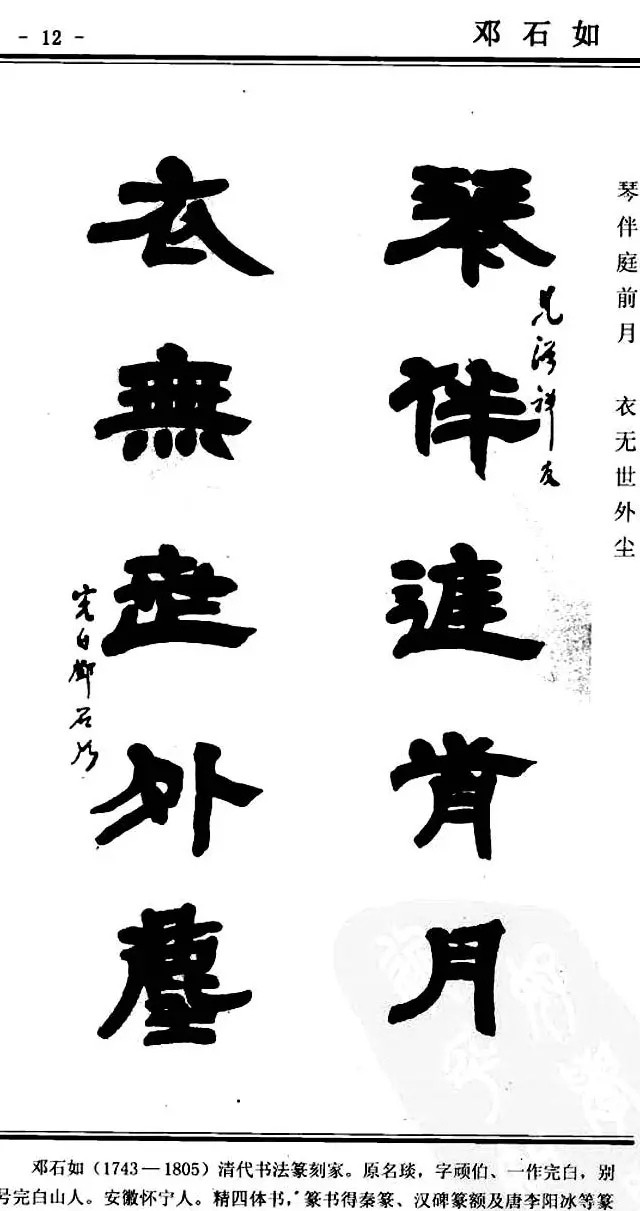 - 12 -
邓石如
琴伴庭前月 衣无世外尘
琴伴庭前月
衣無世外塵
完白鄧石如
邓石如（1743—1805）清代书法篆刻家。原名琰，字顽伯、一作完白，别
号完白山人。安徽怀宁人。精四体书，篆书得秦篆、汉碑篆额及唐李阳冰等篆